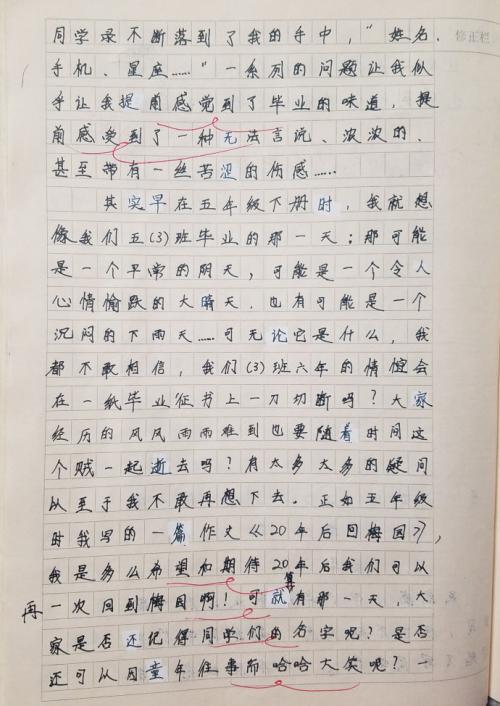 修正栏
同学录不断落到了我的手中，“姓名、
手机、星座……”一系列的问题让我似
乎让我提前感觉到了毕业的味道，提
前感受到了一种无法言说、浓浓的、
甚至带有一丝苦涩的伤感……
其实早在五年级下册时，我就想
像我们五(3)班毕业的那一天；那可能
是一个平常的阴天，可能是一个令人
心情愉跃的大晴天，也有可能是一个
沉闷的下雨天……可无论它是什么，我
都不敢相信，我们(3)班六年的情谊会
在一纸毕业证书上一刀切断吗？大家
经历的风风雨雨难到也要随着时间这
个贼一起逝去吗？有太多太多的疑问
以至于我不敢再想下去。正如五年级
时我写的一篇作文《20年后回梅园》，
我是多么希望和期待20年后我们可以
再一次回到梅园啊！可就算有那一天，大
家是否还记得同学们的名字呢？是否
还可以因童年往事而哈哈大笑呢？一